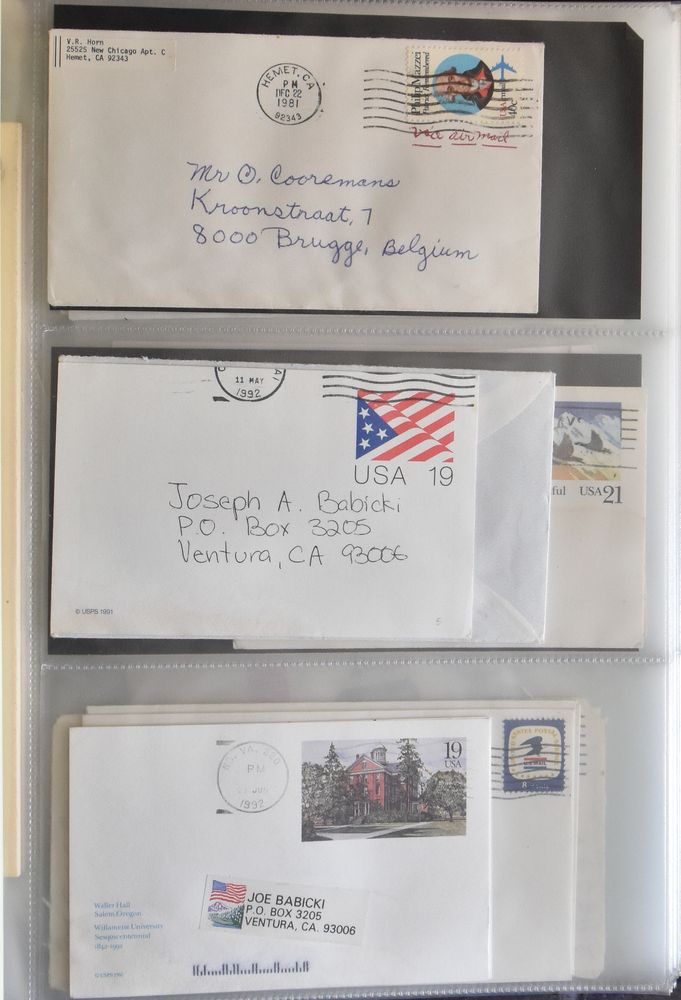 V.R. Horn
25525 New Chicago Apt. C
Hemet, CA 92343
HEMET, CA
PM
DEC 22
1981
92343
Philip Mazzei
Patriot Remembered
USAirmail
40c
Via air mail
Mr O. Cooremans
Kroonstraat, 7
8000 Brugge, Belgium
11 MAY
1992
USA 19
Joseph A. Babicki
P.O. Box 3205
Ventura, CA 93006
© USPS 1991
ful USA 21
NO. VA. 220
PM
JUN
1992
19
USA
8
Waller Hall
Salem, Oregon
Willamette University
Sesquicentennial
1842-1992
JOE BABICKI
P.O. BOX 3205
VENTURA, CA. 93006